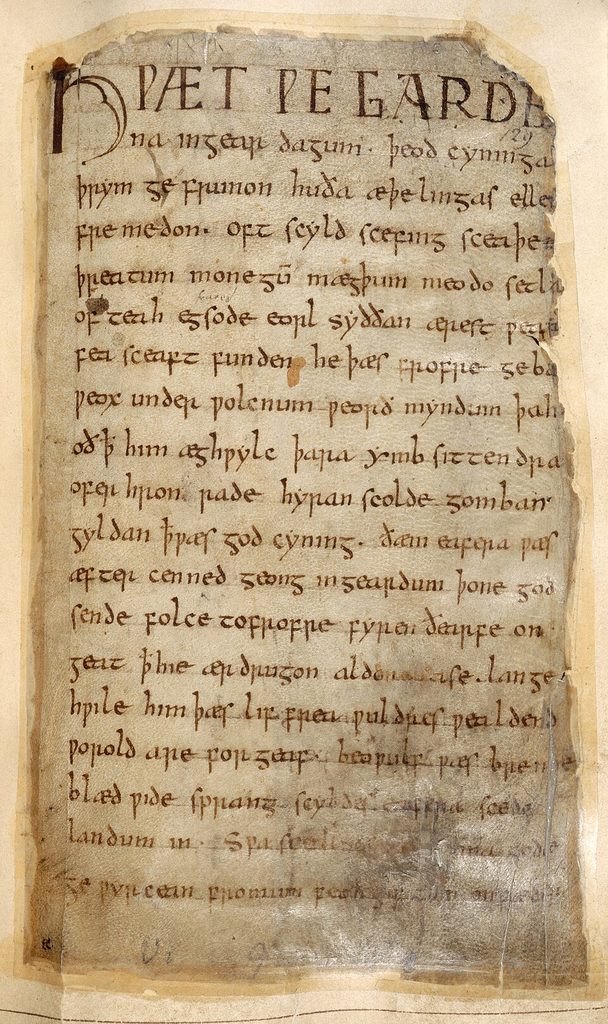 HǷÆT ǷE GARDE
na ingear dagum. þeod cyninga
þrym ge frunon huða æþelingas elle
fremedon. oft scyld scefing sceaþe
þreatum monegū mægþum meodo setla
of teah egsode eorl syððan ærest ƿe
fea sceaft funden he þæs frofre geba
ƿeox under ƿolcnum ƿeorð myndum þah
oð ꝥ him æghƿylc þara ymb sittendra
ofer hron rade hyran scolde gomban
gyldan ꝥ ƿæs god cyning. ðæm eafera ƿæs
æfter cenned geong ingeardum þone god
sende folce tofrofre fyren ðearfe on
geat ꝥ hie ær drugon aldor ase. lange
hƿile him þæs lif frea ƿuldres ƿealdend
ƿorold are forgeaf. beoƿulf ƿæs breme
blæd ƿide sprang scyldes eafera scede
landum in. Sƿa sceal
ge ƿyrcean fromum feoh giftum